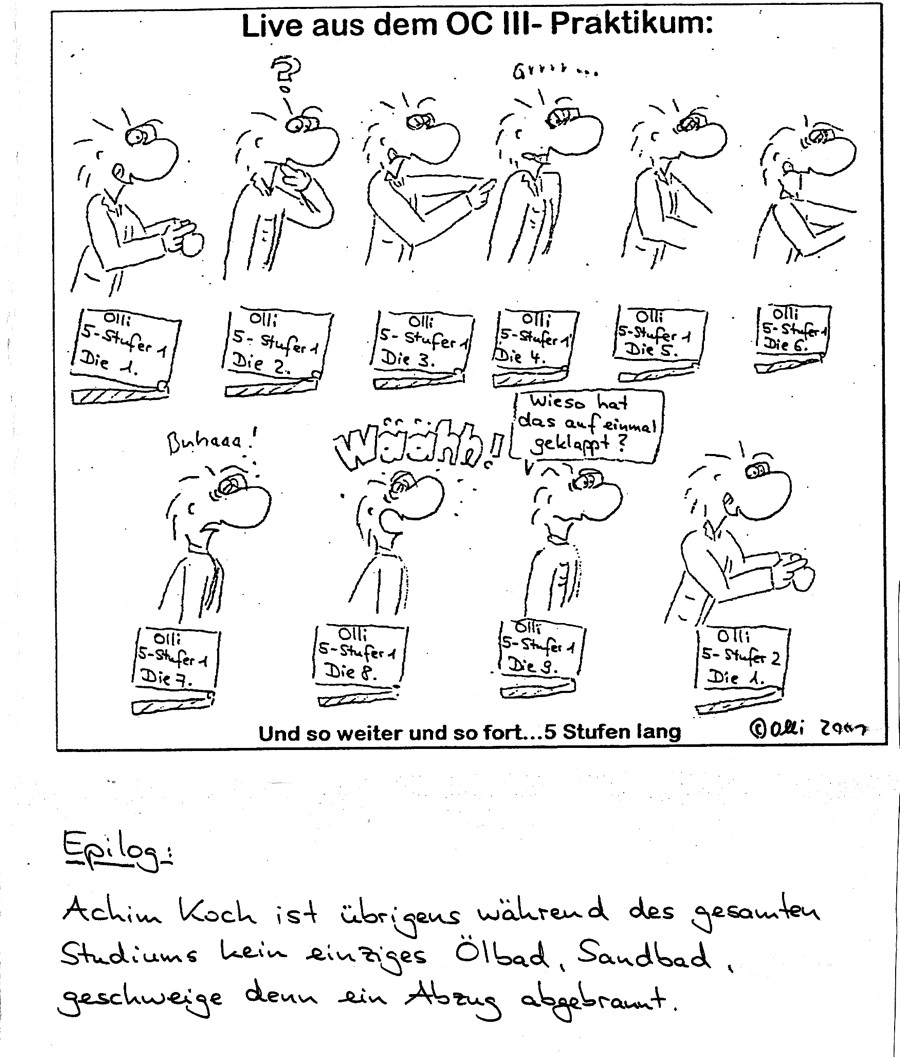 Live aus dem OC III- Praktikum:
?
Grrrr...
Olli
5-Stufer 1
Die 1.
Olli
5-Stufer 1
Die 2.
Olli
5-Stufer 1
Die 3.
Olli
5-Stufer 1
Die 4.
Olli
5-Stufer 1
Die 5.
Olli
5-Stufer 1
Die 6.
Buhaaa!
Wäähh!
Wieso hat
das auf einmal
geklappt?
Olli
5-Stufer 1
Die 7.
Olli
5-Stufer 1
Die 8.
Olli
5-Stufer 1
Die 9.
Olli
5-Stufer 2
Die 1.
Und so weiter und so fort...5 Stufen lang
©Olli
Epilog:
Achim Koch ist übrigens während des gesamten
Studiums kein einziges Ölbad, Sandbad,
geschweige denn ein Abzug abgebrannt.